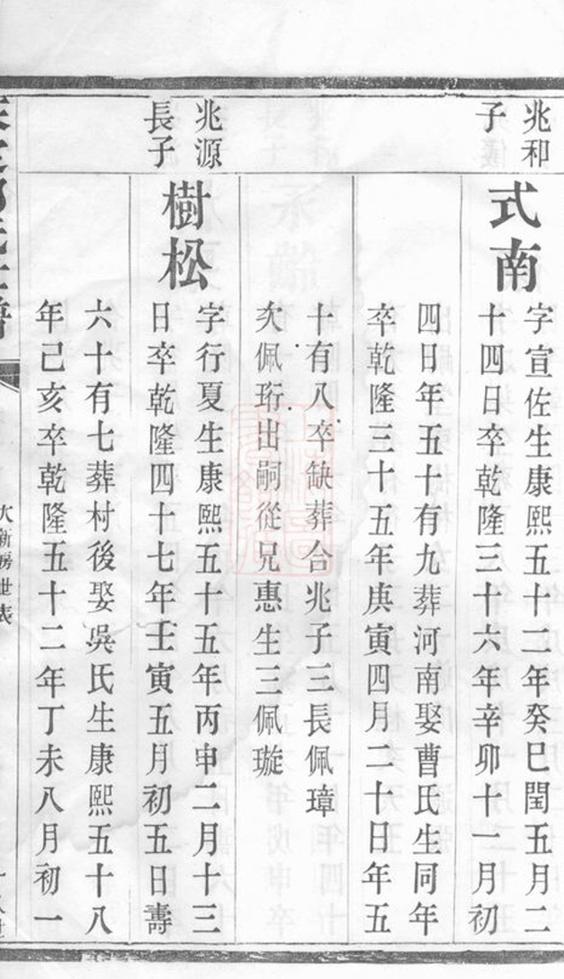 兆和
子
式南
字宣佐生康熙五十二年癸巳閏五月二
十四日卒乾隆三十六年辛卯十一月初
四日年五十有九葬河南娶曹氏生同年
卒乾隆三十五年庚寅四月二十日年五
十有八卒缺葬合兆子三長佩璋
次佩珩出嗣從兄惠生三佩璇
兆源
長子
樹松
字行夏生康熙五十五年丙申二月十三
日卒乾隆四十七年壬寅五月初五日壽
六十有七葬村後娶吳氏生康熙五十八
年己亥卒乾隆五十二年丁未八月初一
大新房世表